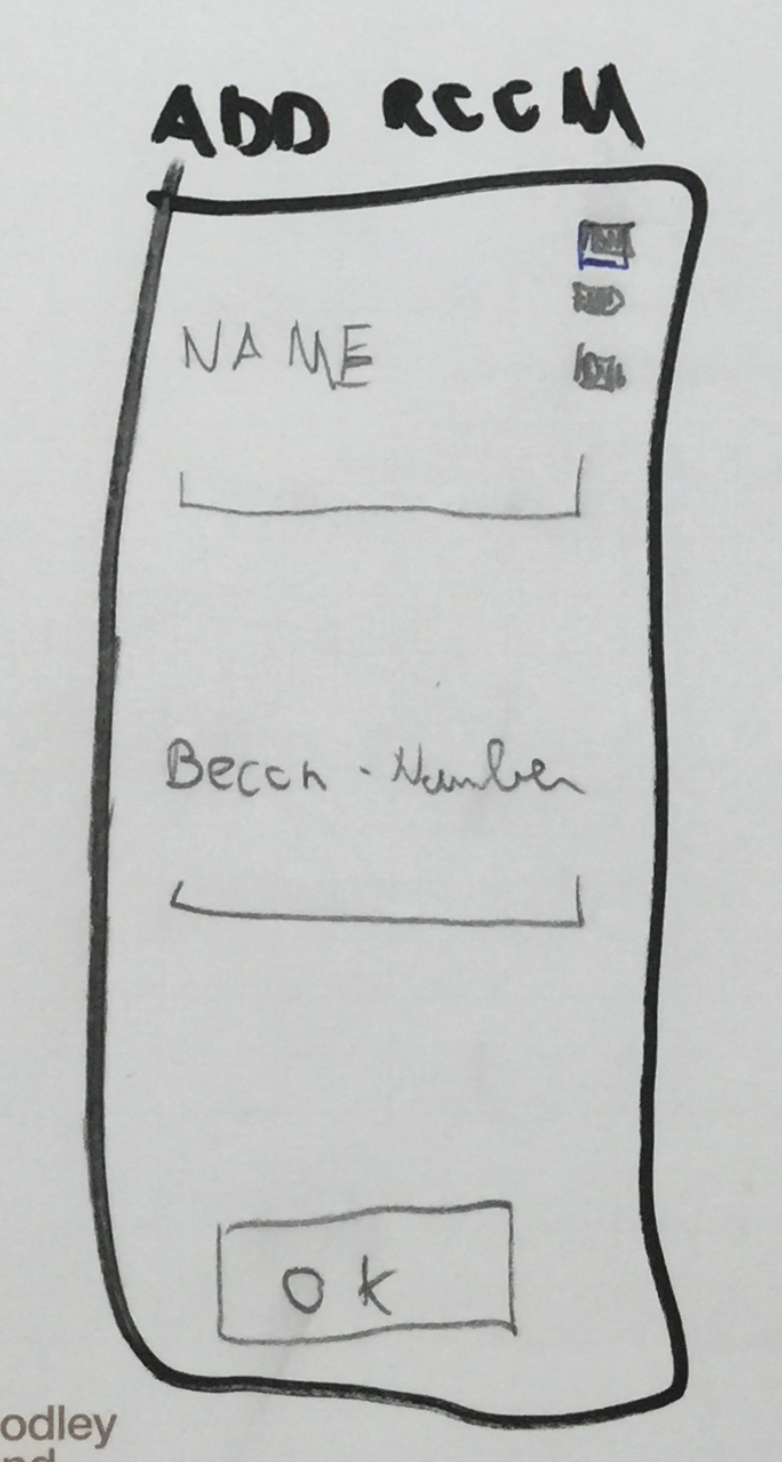 ADD ROOM
NAME
Becon - Number
OK
odley
nd